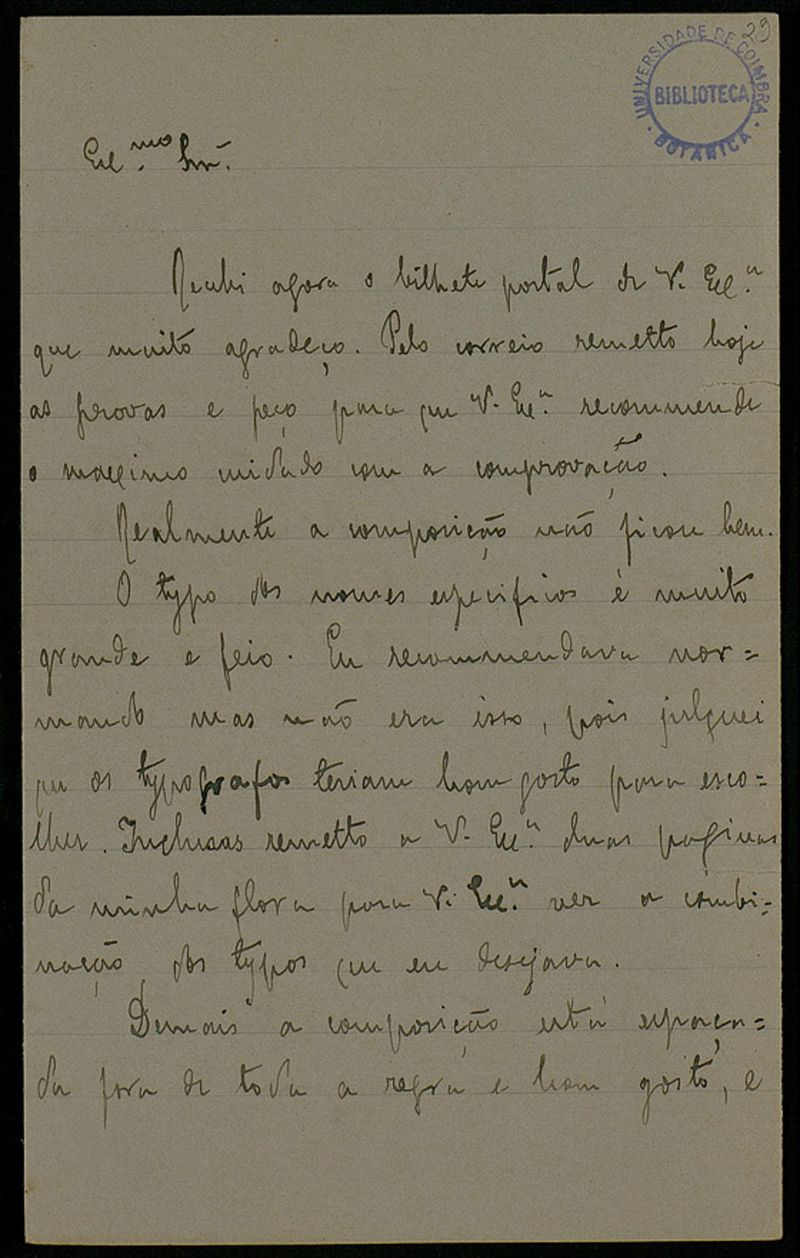 29
UNIVERSIDADE DE COIMBRA
BIBLIOTECA
BOTANICA
Exc.mo Snr.
Recebi agora o bilhete postal de V. Exc.a
que muito agradeço. Pelo correio remetto hoje
as provas e peço para que V. Exc.a recommende
o maximo cuidado com a comprovação.
Realmente a composição não ficou bem.
O typo dos nomes especificos é muito
grande e feio. Eu recommendava nor=
mando mas não era isso, pois julguei
que os typografos teriam bom gosto para esco=
lher. Inclusas remetto a V. Exc.a duas paginas
da minha flora para V. Exc.a ver a combi=
nação dos typos que eu desejava.
Demais a composição está espaça=
da fora de toda a regra e bom gosto, e